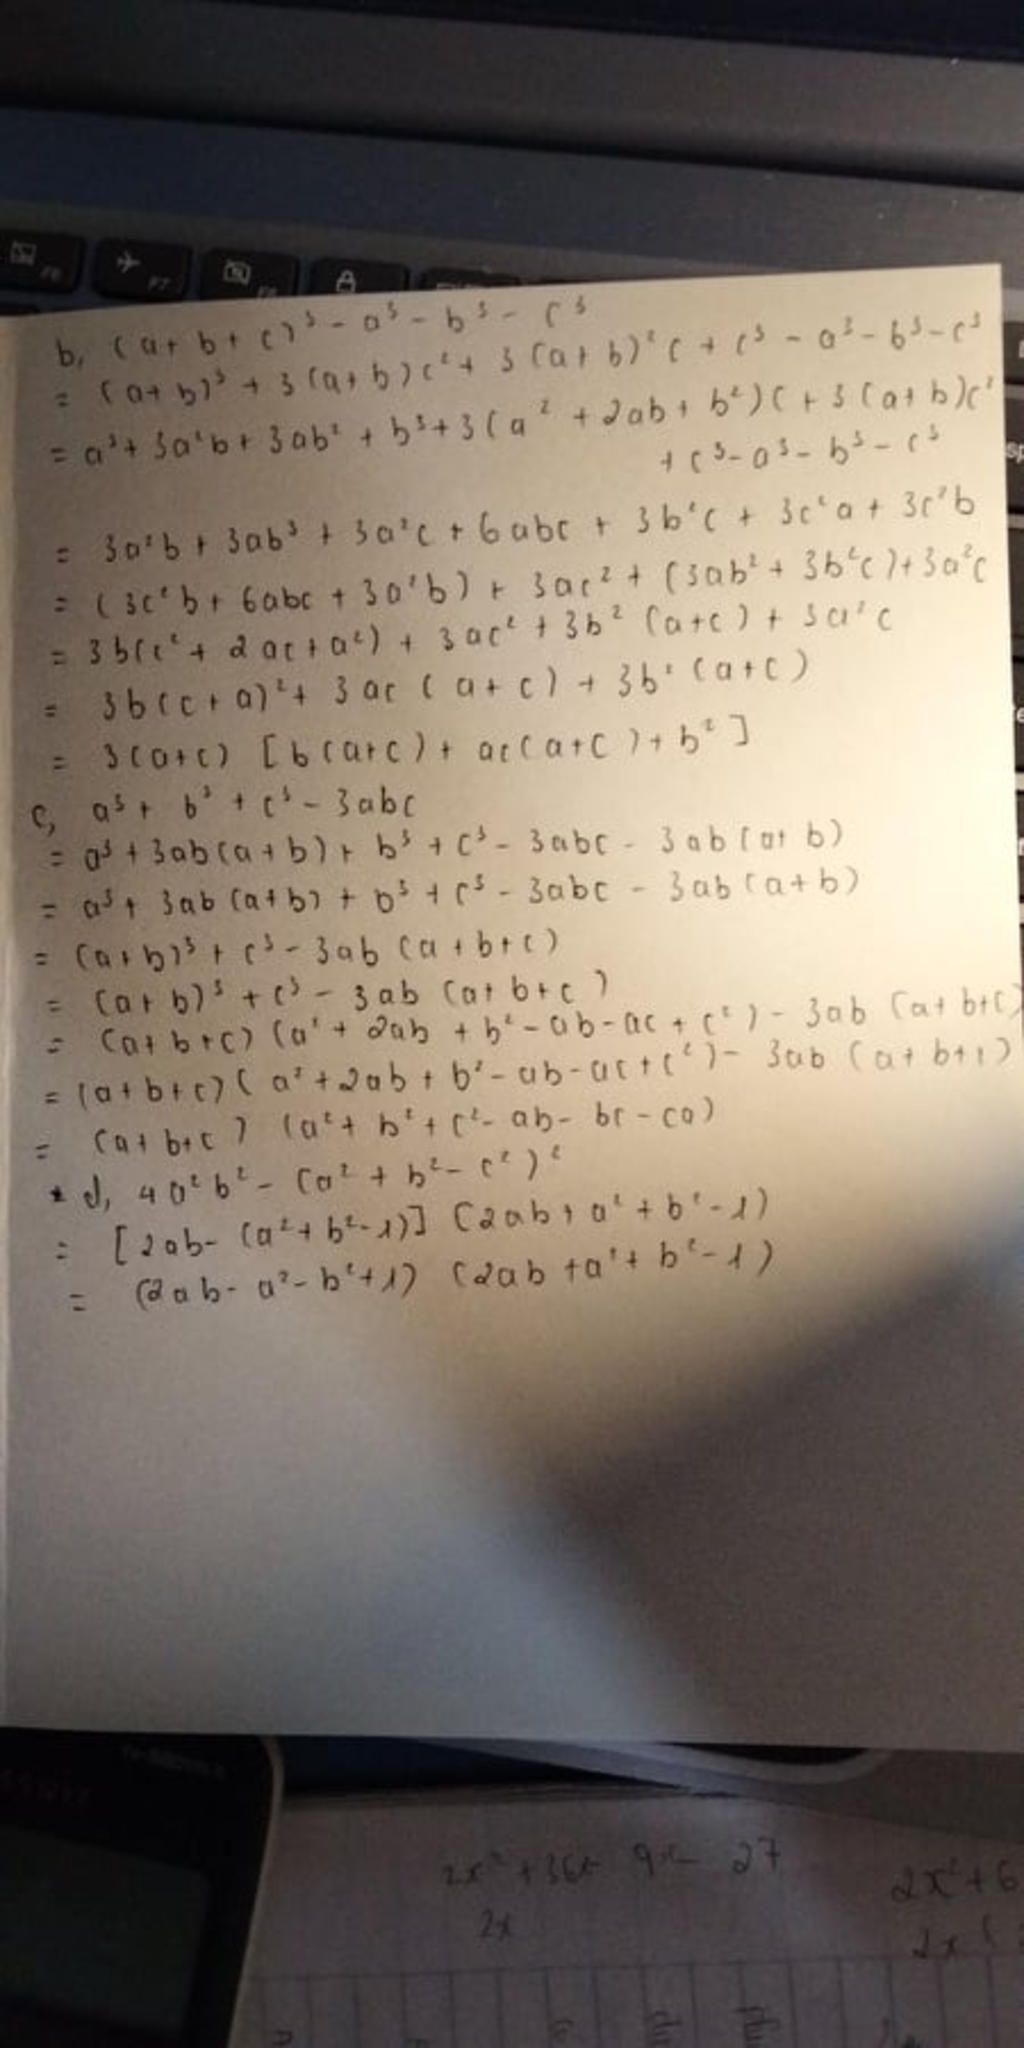 F6
F7
b, (a+b+c)³ - a³ - b³ - c³
= (a+b)³ + 3(a+b)c² + 3(a+b)²c + c³ - a³ - b³ - c³
= a³ + 3a²b + 3ab² + b³ + 3(a² + 2ab + b²)c + 3(a+b)c²
+ c³ - a³ - b³ - c³
= 3a²b + 3ab³ + 3a²c + 6abc + 3b²c + 3c²a + 3c²b
= (3c²b + 6abc + 3a²b) + 3ac² + (3ab² + 3b²c) + 3a²c
= 3b(c² + 2ac + a²) + 3ac² + 3b²(a+c) + 3a²c
= 3b(c+a)² + 3ac(a+c) + 3b²(a+c)
= 3(a+c) [b(a+c) + ac(a+c) + b²]
c, a³ + b³ + c³ - 3abc
= a³ + 3ab(a+b) + b³ + c³ - 3abc - 3ab(a+b)
= a³ + 3ab(a+b) + b³ + c³ - 3abc - 3ab(a+b)
= (a+b)³ + c³ - 3ab(a+b+c)
= (a+b)³ + c³ - 3ab(a+b+c)
= (a+b+c)(a² + 2ab + b² - ab - ac + c²) - 3ab(a+b+c)
= (a+b+c)(a² + 2ab + b² - ab - ac + c²) - 3ab(a+b+1)
= (a+b+c)(a² + b² + c² - ab - bc - ca)
* d, 4a²b² - (a² + b² - c²)²
= [2ab - (a² + b² - 1)] (2ab + a² + b² - 1)
= (2ab - a² - b² + 1) (2ab + a² + b² - 1)
27
2x² + 6
2x